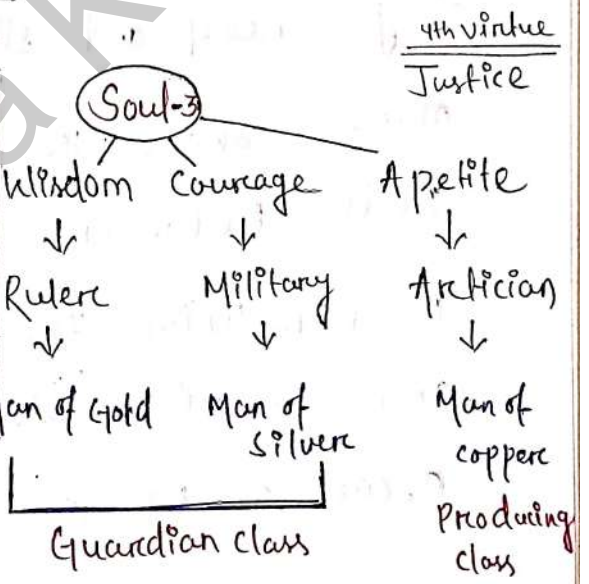 4th virtue
Justice
Soul-3
Wisdom Courage Apetite
Ruler Military Artician
an of Gold Man of silver Man of copper
Guardian class
Producing class